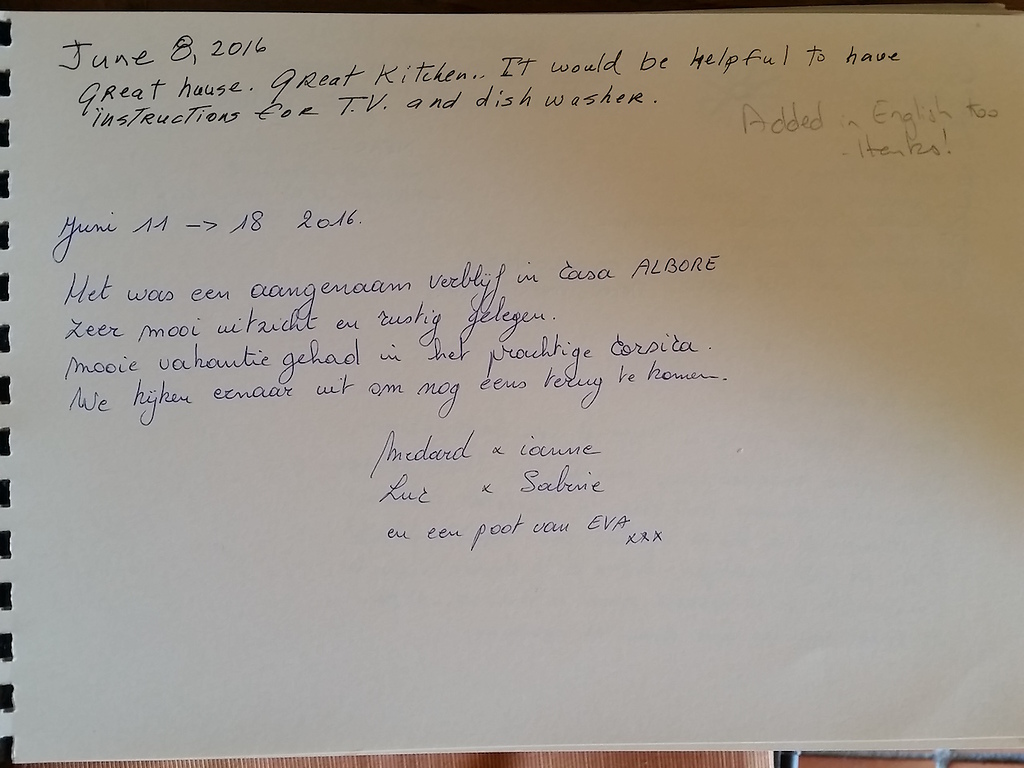 June 8, 2016
Great house. Great Kitchen.. It would be helpful to have
instructions for T.V. and dish washer.
Added in English too
- thanks!
Juni 11 -> 18 2016.
Het was een aangenaam verblijf in Casa ALBORE
Zeer mooi uitzicht en rustig gelegen.
Mooie vakantie gehad in het prachtige Corsica.
We kijken ernaar uit om nog eens terug te komen.
Medard & ianne
Luc & Sabine
en een poot van EVA xxx